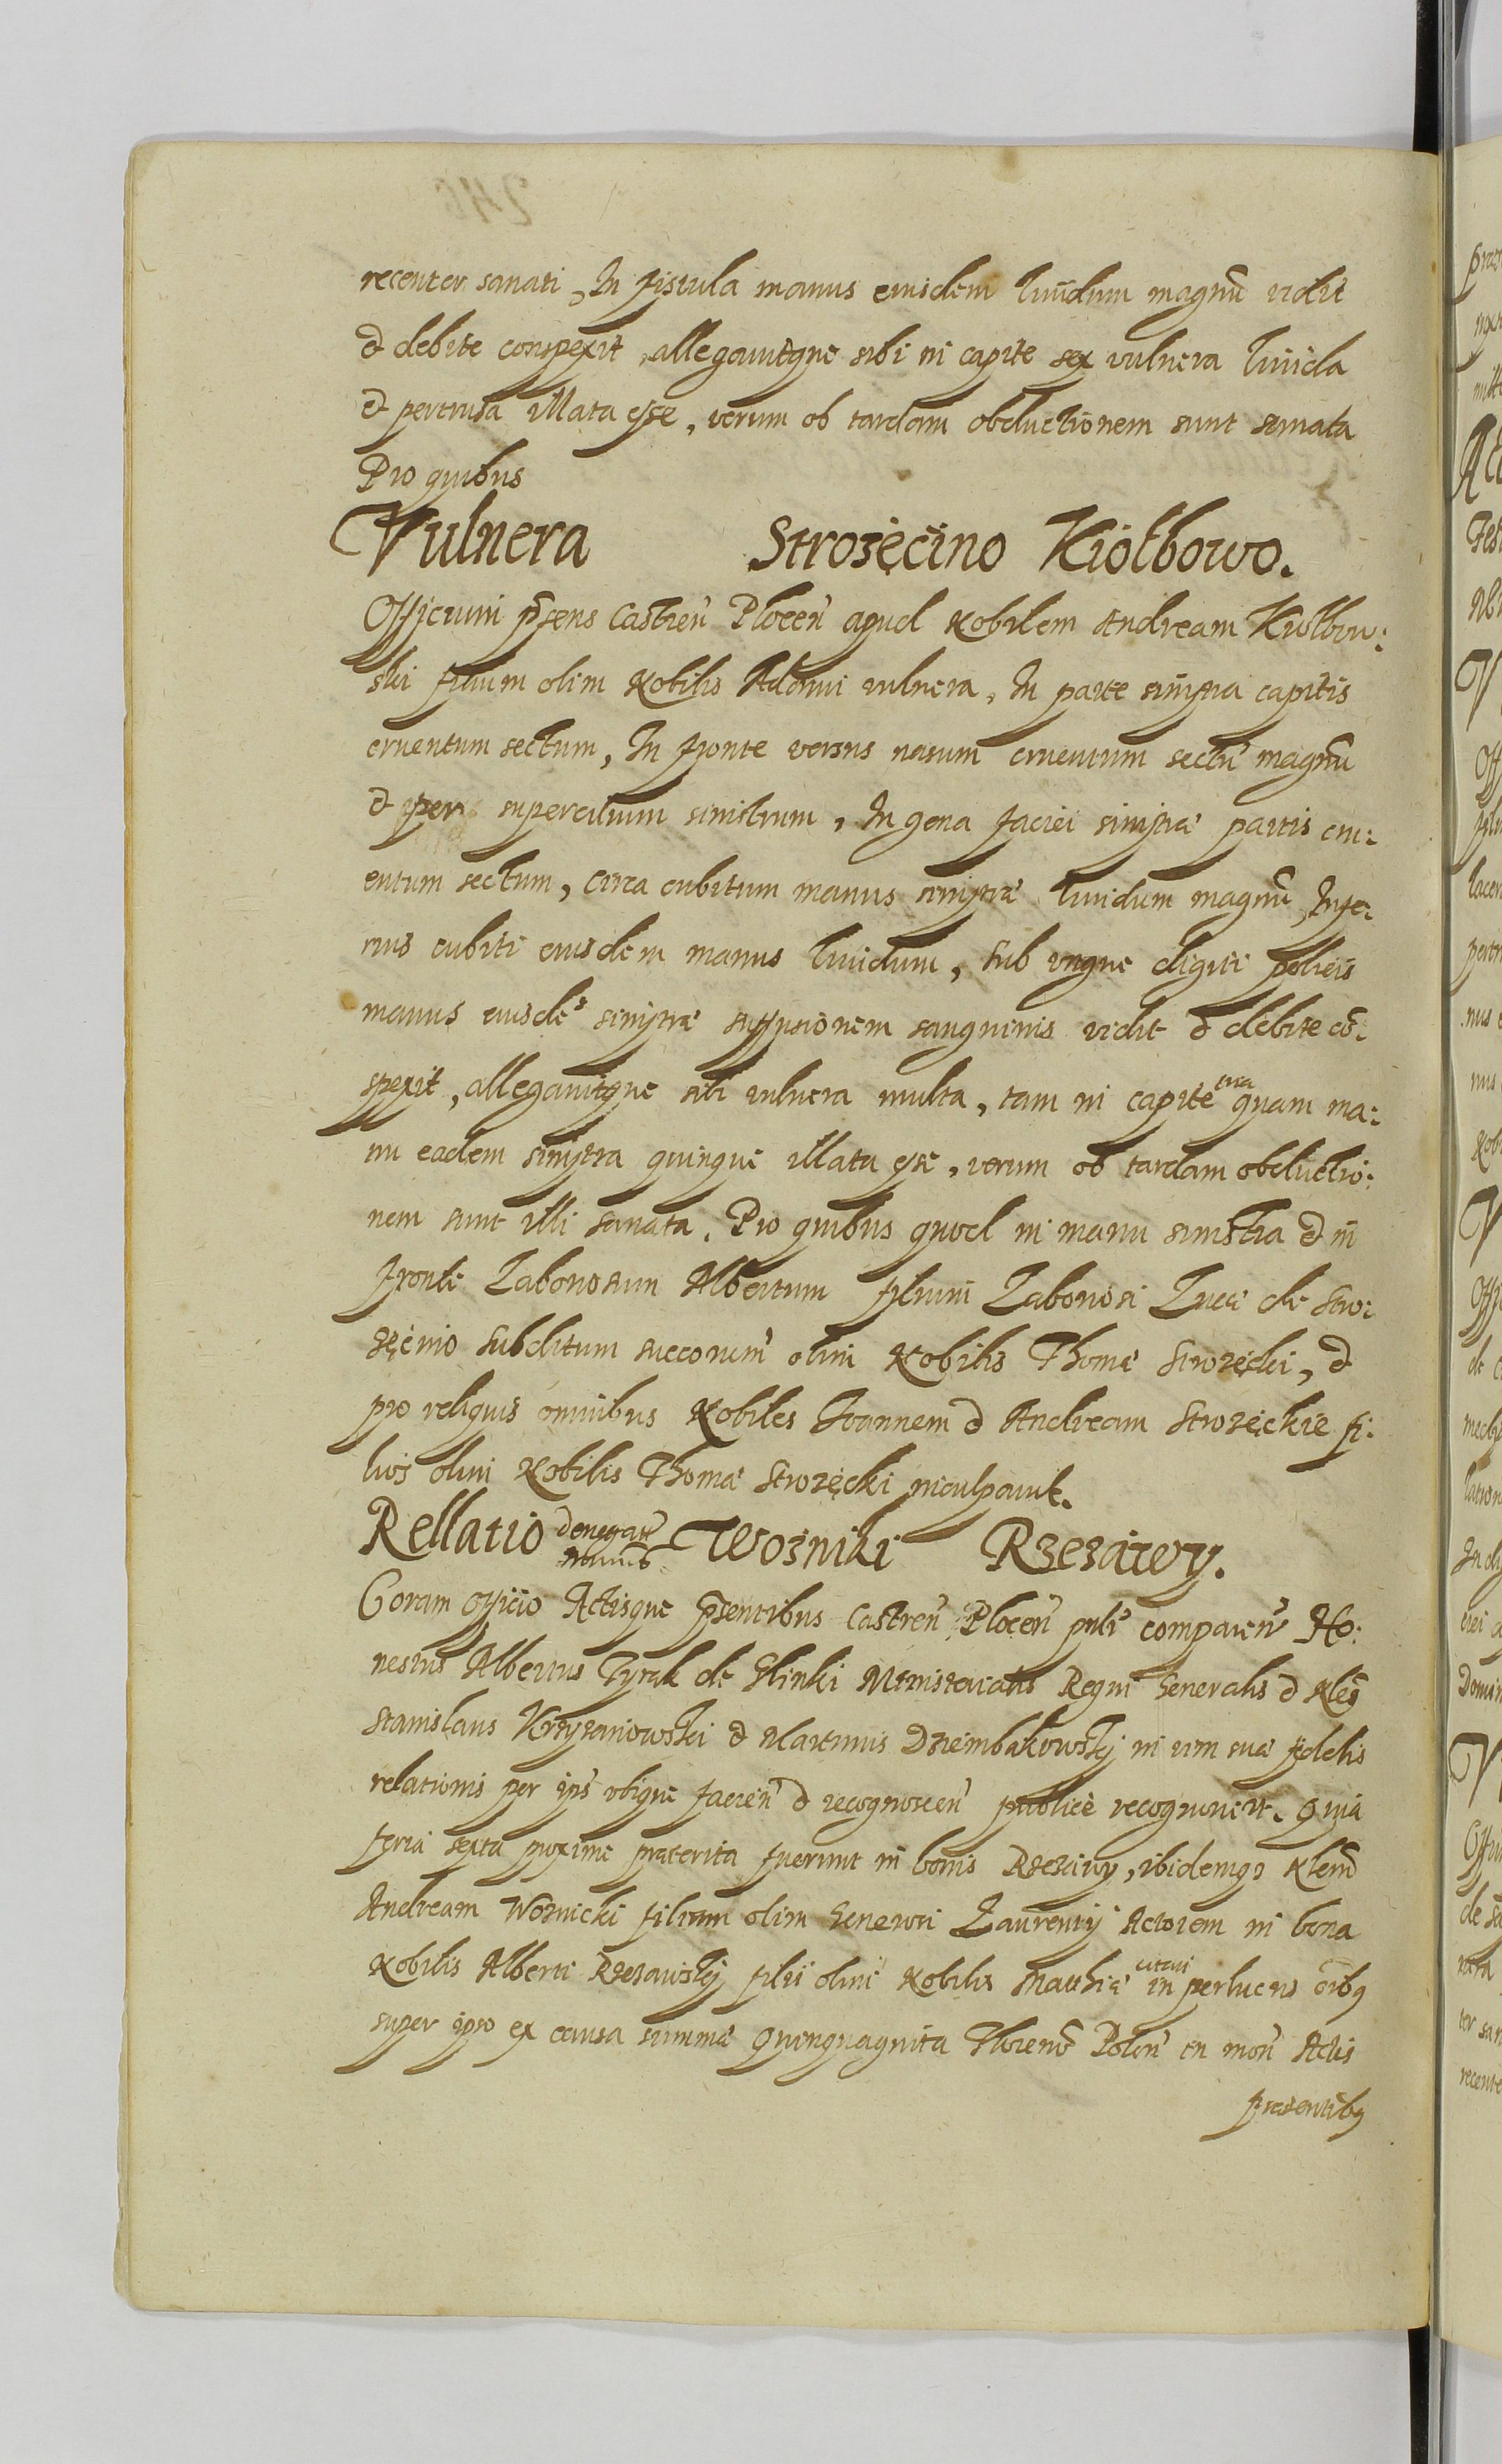 recenter sanati, In fistula manus eiusdem liuidum magnū vidit
& debite conspexit, allegauitque sibi in capite sex vulnera liuida
& pertrusa illata esse, verum ob tardam obductionem sunt sanata
Pro quibus
Vulnera Strozęcino Kiołbowo.
Officium pn̄s Castren̄ Plocen̄ apud Nobilem Andream Kiołbow:
ski filium olim Nobilis Adami vulnera, In parte sinistra capitis
cruentum sectum, In fronte versus nasum cruentum sectū magnū
& per supercilium sinistrum, In gena faciei sinistræ partis cru:
entum sectum, circa cubitum manus sinistræ liuidum magnū, Infe:
rius cubiti eiusdem manus liuidum, sub ungue digiti pollicis
manus eiusdē sinistræ suffusionem sanguinis vidit & debite cō:
spexit, allegauitque sibi vulnera multa, tam in capite quam ma:
nu eadem sinistra quinque illata esse, verum ob tardam obductio:
nem sunt illi sanata. Pro quibus quod in manu sinistra & in
fronte Laboriosum Albertum filium Laboriosi Lucæ de Stro:
zęcino subditum succorum olim Nobilis Thomæ Strozęcki, &
pro reliquis omnibus Nobiles Joannem & Andream Strozęckie fi:
lios olim Nobilis Thomæ Strozęcki inculpauit.
Rellatio Wozniki Rzezawy.
Coram officio Actisque pn̄sentibus Castren̄ Plocen̄ pnlr̄ comparen̄ Ho:
nestus Albertus Tyrak de Glinki Ministerialis Regni Generalis & Nles
Stanislaus Krzyzaniowski & Martinus Dziembakowskj in vim suæ fidelis
relationis per ips̄ ubique facien̄ & recognoscen̄ publicè recognouert. Quia
feria sexta proximè præterita fuerunt in bonis Rzezawy, ibidemq3 Nlem
Andream Woznicki filium olim Generosi Laurentij Actorem in bona
Nobilis Alberti Rzezawskj filii olim Nobilis Mathiæ in perlucris oībq
super ipso ex causa summæ Quinquaginta Floren̄ Polon̄ in mon̄ Actis
præsentibq